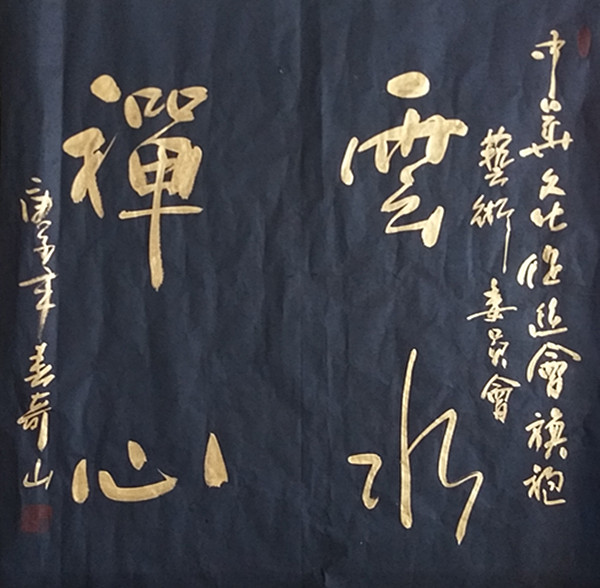 中華文化促進會旗袍
藝術委員會
雲水
禪心
庚子年春奇山